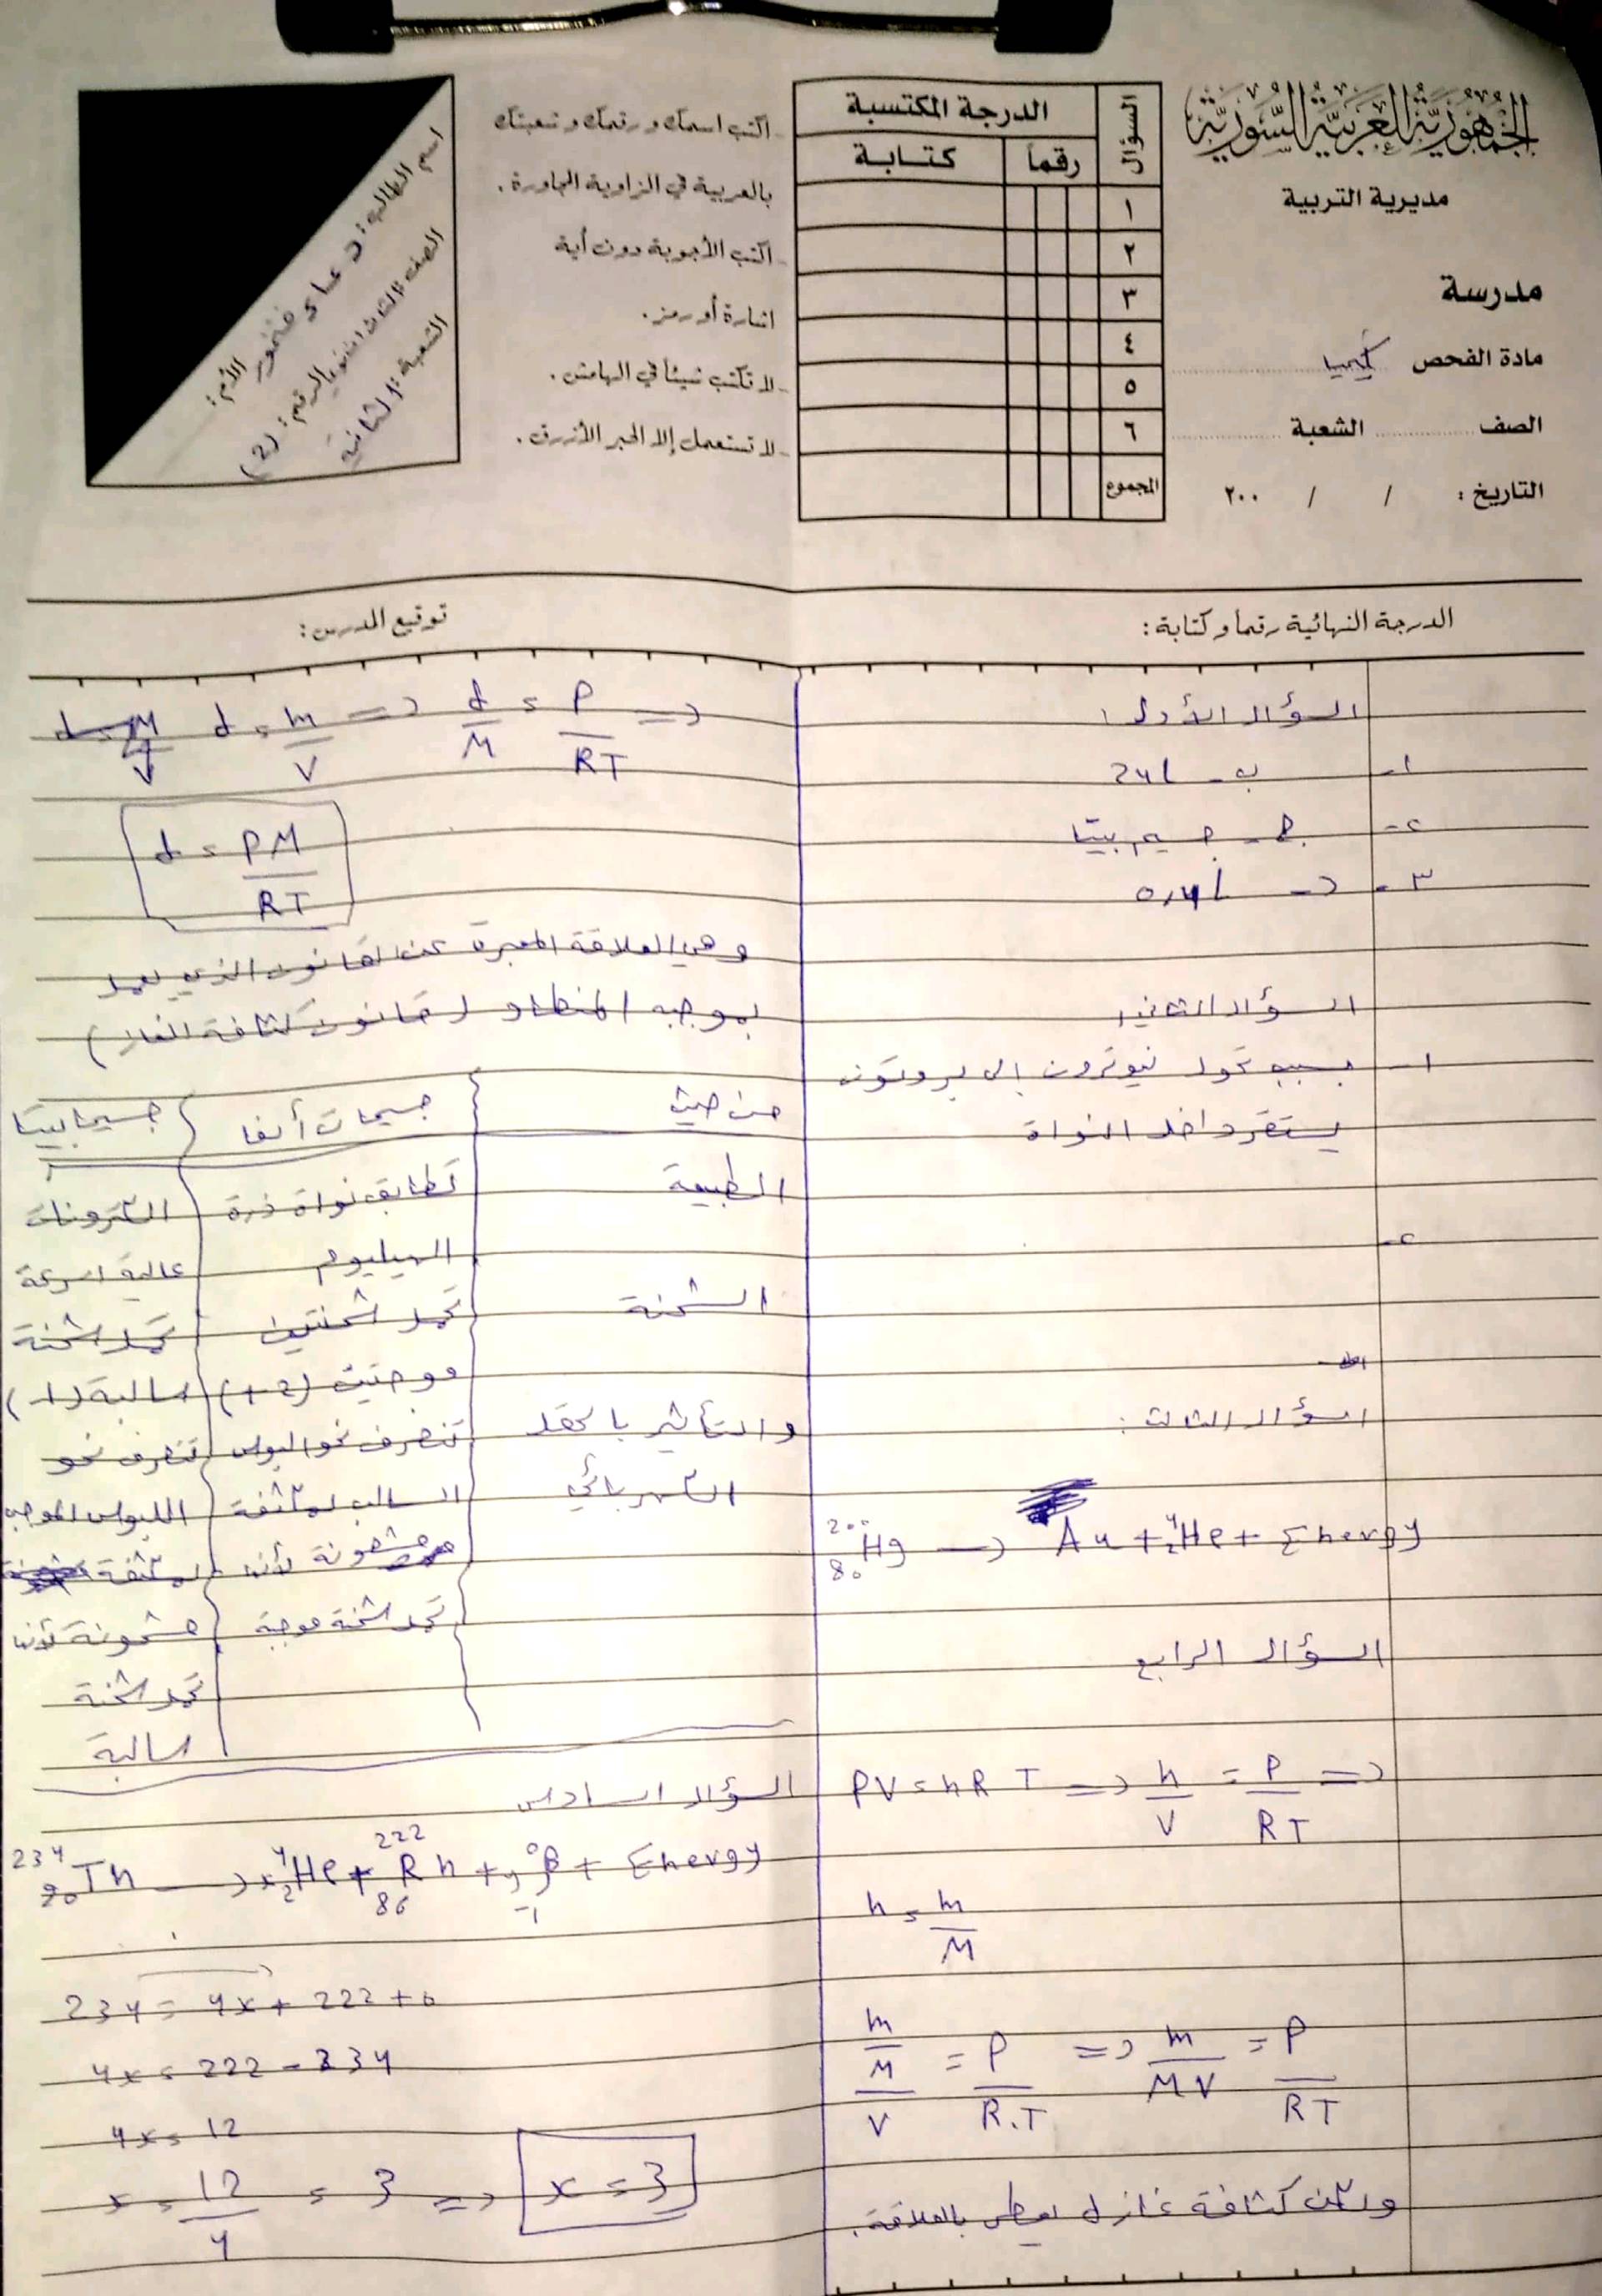 الجمهورية العربية السورية
مديرية التربية
مدرسة
مادة الفحص كيميا
الصف الشعبة
التاريخ : / / ٢٠٠
السؤال الدرجة المكتسبة
رقماً كتابة
١
٢
٣
٤
٥
٦
المجموع
- اكتب اسمك ورقمك وشعبتك
بالعربية في الزاوية المجاورة .
- اكتب الأجوبة دون أية
اشارة أو رمز .
- لا تكتب شيئاً في الهامش .
- لا تستعمل إلا الحبر الأزرق .
اسم الطالب: دعاء الأم:
الصف: الثالث الثانوي الرقم: (2)
الشعبة: الثانية
الدرجة النهائية رقماً وكتابة :
توقيع المدرس :
السؤال الأول:
١- ب - 24L
٢- جـ - جسيم بيتا
٣-
السؤال الثاني:
١- بسبب تحول نيوترون إلى بروتون
يستقر داخل النواة
٢-
السؤال الثالث:
²⁰⁰₈₀Hg → Au + ⁴₂He + Energy
السؤال الرابع
PV = nRT => n/V = P/RT =>
n = m/M
(m/M)/V = P/R.T => m/MV = P/RT
ولكن كثافة غاز لـ يعطى بالعلاقة:
d = m/V => d/M = P/RT =>
d = PM/RT
وهي العلاقة المعبرة عن القانون الذي يعمل
بموجبه المنطاد (قانون كثافة الغاز)
من حيث جسيمات ألفا جسيما بيتا
الطبيعة تطابق نواة ذرة الكترونات
الهيليوم عالية السرعة
الشحنة تحمل شحنتين تحمل شحنة
موجبتين (+2) سالبة (-1)
والتأثير بالحقل تنحرف نحو البوس تنحرف نحو
الكهربائي السالب لمكثفة اللبوس الموجب
مشحونة لأنها لمكثفة
تحمل شحنة موجبة مشحونة لأنها
تحمل شحنة
سالبة
السؤال السادس
²³⁴₉₀Th → x⁴₂He + ²²²₈₆Rn + y⁰₋₁β + Energy
234 = 4x + 222 + 0
4x = 222 - 234
4x = 12
x = 12/4 = 3 => x = 3